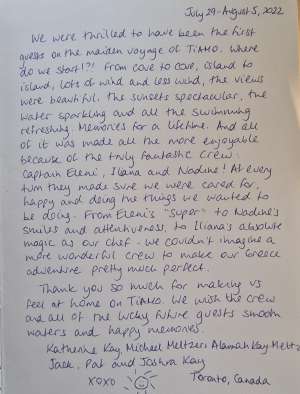 July 29-August 5, 2022
We were thrilled to have been the first
guests on the maiden voyage of TIAMO. Where
do we start!?! From cove to cove, island to
island, lots of wind and less wind, the views
were beautiful, the sunsets spectacular, the
water sparkling and all the swimming
refreshing. Memories for a lifetime. And all
of it was made all the more enjoyable
because of the truly fantastic crew:
Captain Eleni, Iliana and Nadine! At every
turn they made sure we were cared for,
happy and doing the things we wanted to
be doing. From Eleni's "super" to Nadine's
smiles and attentiveness, to Iliana's absolute
magic as our chef - we couldn't imagine a
more wonderful crew to make our Greece
adventure pretty much perfect.
Thank you so much for making us
feel at home on TIAMO. We wish the crew
and all of the lucky future guests smooth
waters and happy memories.
Katherine Kay, Michael Meltzer, Kay Meltz
Jack, Pat and Joshua Kay
xoxo Toronto, Canada